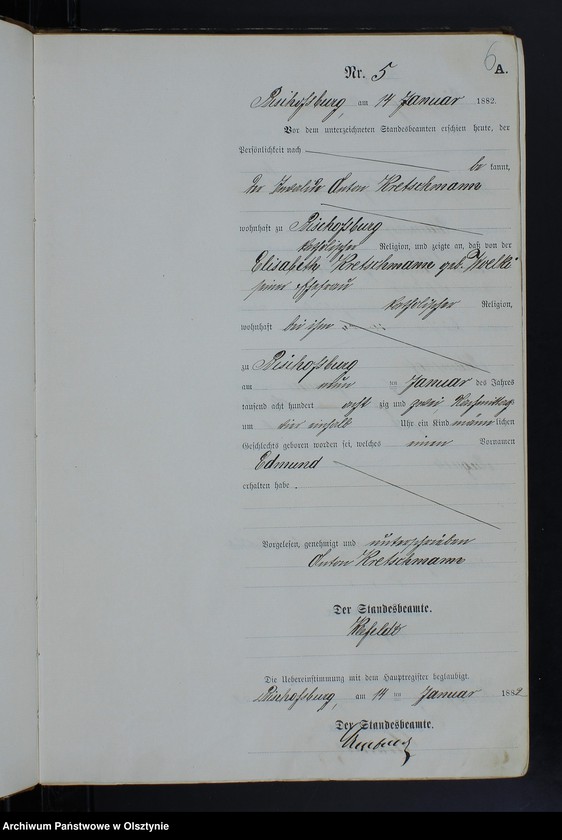 6
A.
Nr. 5
Bischofsburg, am 14 Januar 1882.
Vor dem unterzeichneten Standesbeamten erschien heute, der
Persönlichkeit nach
be kannt,
der Invalide Anton Kretschmann
wohnhaft zu Bischofsburg
katholischer Religion, und zeigte an, daß von der
Elisabeth Kretschmann geb.
seiner Ehefrau
katholischer Religion,
wohnhaft bei ihm
zu Bischofsburg
am neun ten Januar des Jahres
tausend acht hundert acht zig und zwei, Nachmittags
um vier einhalb Uhr ein Kind männ lichen
Geschlechts geboren worden sei, welches einen Vornamen
Edmund
erhalten habe.
Vorgelesen, genehmigt und unterschrieben
Anton Kretschmann
Der Standesbeamte.
Die Uebereinstimmung mit dem Hauptregister beglaubigt.
Bischofsburg, am 14 ten Januar 1882
Der Standesbeamte.
Archiwum Państwowe w Olsztynie